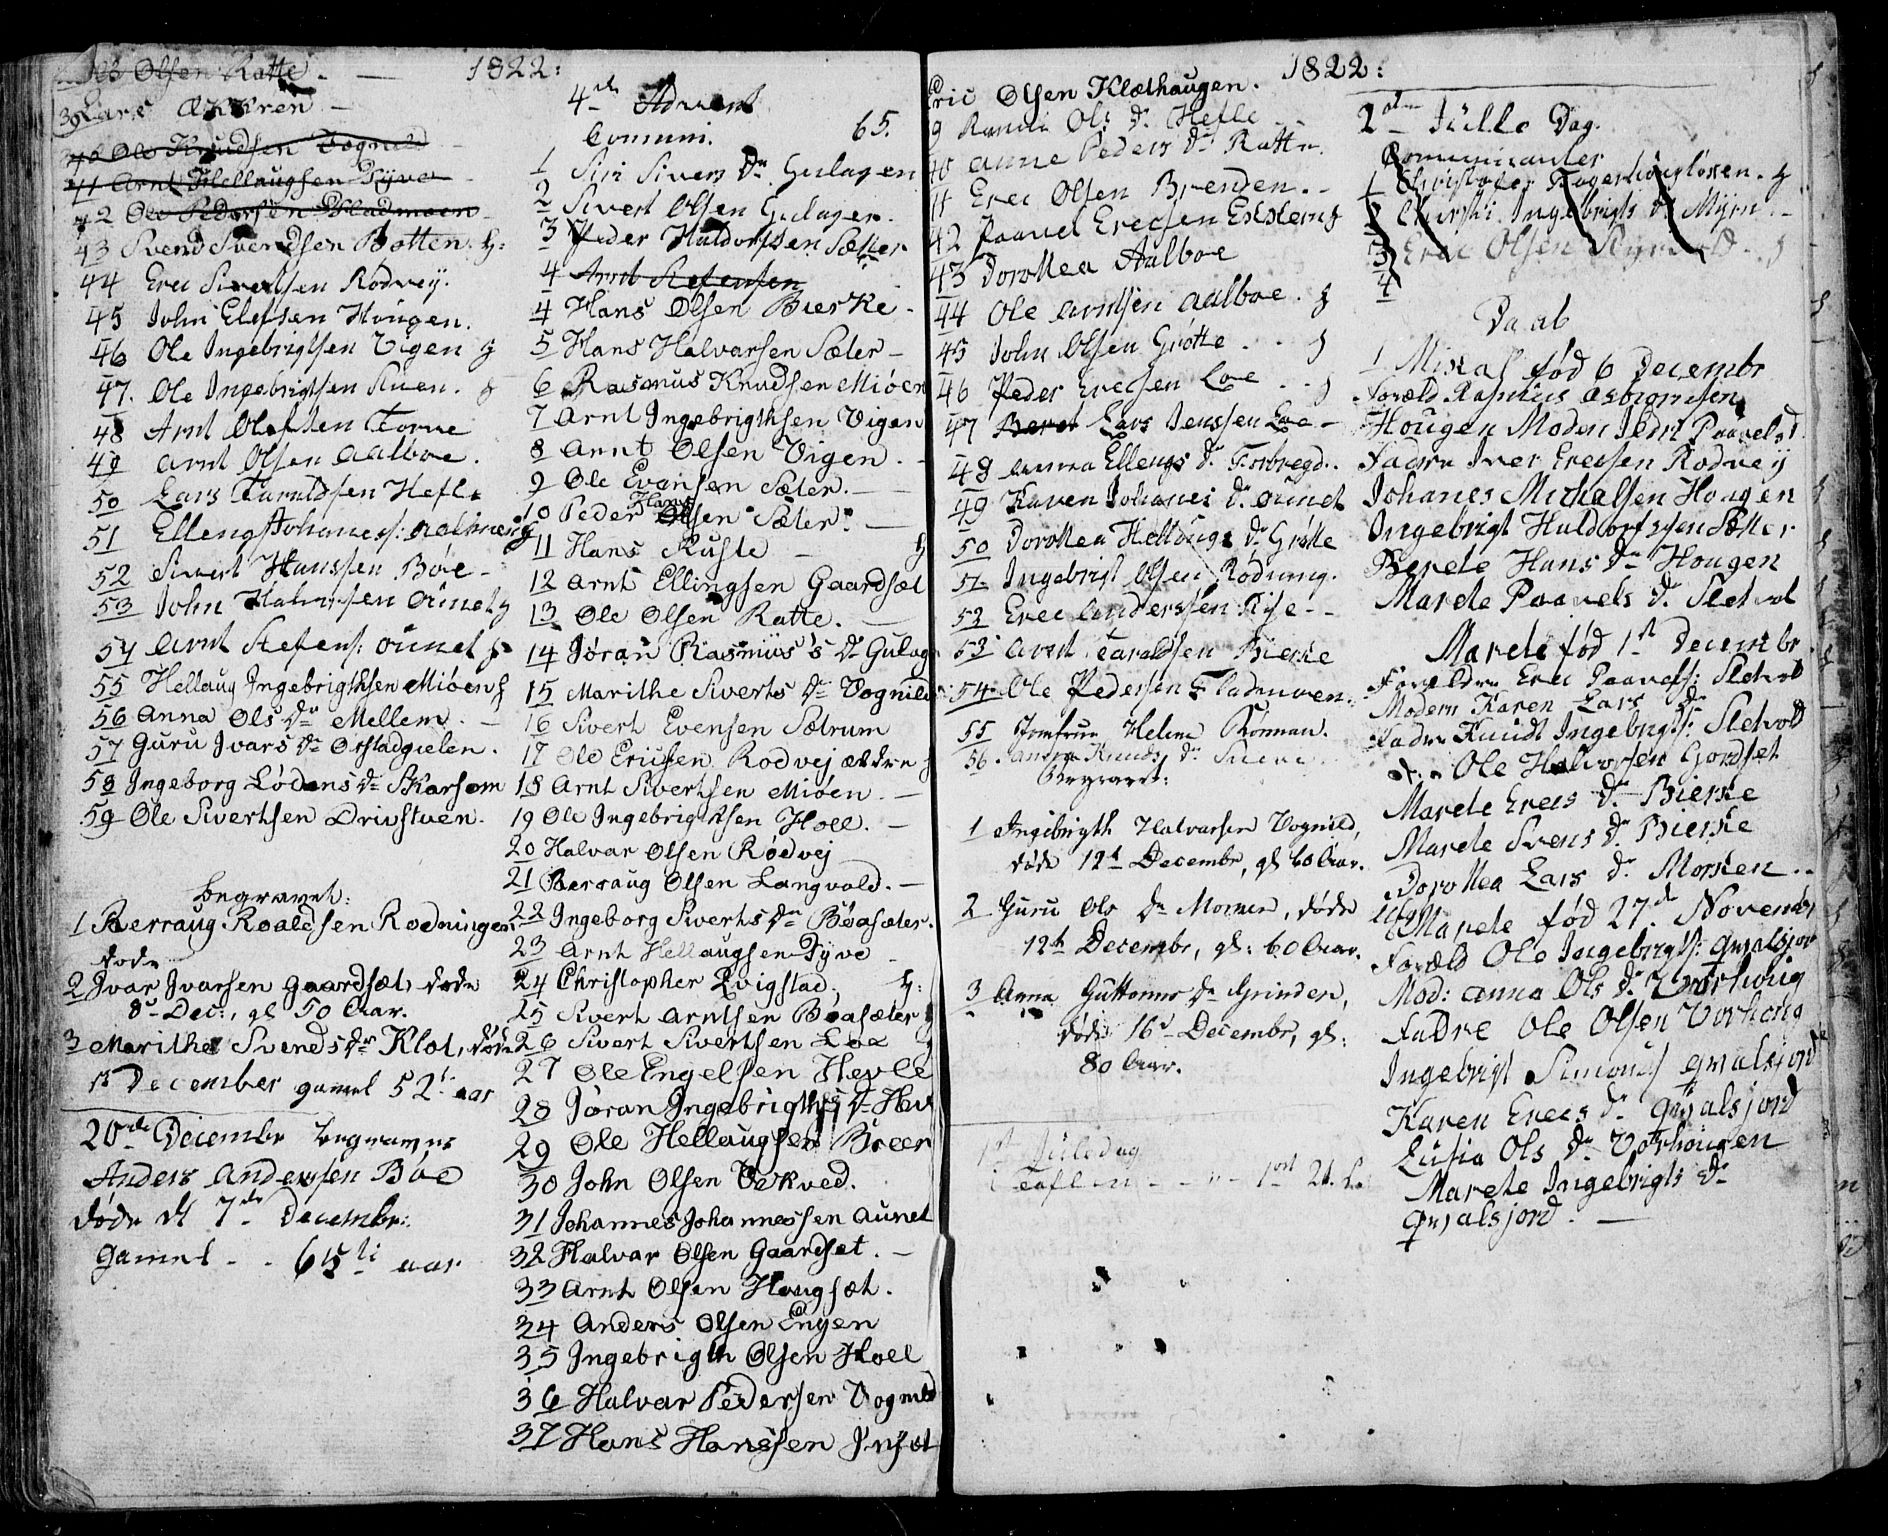 1822:
Olsen Ratte. —
39 Lars Ækkren —
40 Ole Knudsen Vognild
41 Arnt Hellaugsen Tyve
42 Ole Pedersen Fladmoen
43 Svend Svendsen Botten. H:
44 Erec Sivertsen Rodvey.
45 John Elefsen Hougen.
46 Ole Ingebrigtsen Vigen H
47. Ole Ingebrigtsen Stuen. H
48 Arnt Olefsen Torve
49 Arnt Olsen Aalboe.
50 Lars Taraldsen Hefle
51 Elleng Johanes:
52 Sivert Hanssen Bøe —
53 John Halvorsen Ounet H
54 Arnt Stefens: Ounet H
55 Hellaug Ingebrigthsen Miøen H
56 Anna Ols Dr Mellem. —
57 Guru Ivars Dr Ørstadgielen.
58 Ingeborg Lødens Dr Skarsem
59 Ole Sivertsen Drivstuen.
begravet:
1 Berraug Roaldsen Rodningen,
døde
2 Ivar Ivarsen Gaardsæt, døde
8de Dec:, gl 50 Aar.
3 Marithe Svends Dr Klot, døde
1st December gamel 52 aar
20de Decembr begraves
Anders Anderssen Böe
døde d 7de Decembr:
gamel - . 65ti aar
4de Advent
Comuni. 65.
1 Siri Sivers Dr Gulagen
2 Sivert Olsen Gulagen.
3 Peder Haldorssen Sætter
4 Arnt Stefensen
4 Hans Olsen Bierke —
5 Hans Halvarsen Sæter —
6 Rasmus Knudsen Miöen
7 Arnt Ingebrigthsen Vigen
8 Arnt Olsen Vigen. —
9 Ole Evensen Sæter. —
10 Peder Hans Olsen Sæter. —
11 Hans Ruste — H
12 Arnt Ellingsen Gaardsæt
13 Ole Olsen Ratte. —
14 Jöran Rasmus's Dr Gulag
15 Marithe Siverts Dr Vognild
16 Sivert Evensen Sætrum
17 Ole Ericksen Rodvej ældre H
18 Arnt Sivertsen Miöen. —
19 Ole Ingebrigthsen Holl. —
20 Halvar Olsen Rödvej
21 Berraug Olsen Langvold. —
22 Ingeborg Siverts Dr Böasæter.
23 Arnt Hellaugsen Tyve —
24 Christopher Qvigstad. H:
25 Sivert Arntsen Böasæter H
26 Sivert Sivertsen Loe H
27 Ole Engelsen Hevle
28 Jöran Ingebrigths Dr Hev
29 Ole Hellaugsen Breen
30 John Olsen Vekved.
31 Johannes Johannessen Aunet
32 Halvar Olsen Gaardsæt. —
33 Arnt Olsen Hougsæt.
34 Anders Olsen Engen
35 Ingebrigth Olsen Holl
36 Halvar Pedersen Vognild
37 Hans Hanssen Insæt
1822:
Eric Olsen Klæthaugen.
9 Ols Dr Hefle
40 Anne Peders Dr Ratte.
41 Erec Olsen Brenden. —
42 Paavel Erecsen
43 Dorottea Aalboe
44 Ole Arntsen Aalboe. H
45 John Olsen Grötte. . H
46 Peder Erecsen Loe . . H
47 Beret Lars Jenssen Loe —
48 Anna Ellengs Dr Forbregd..
49 Karen Johanes Dr Ounet
50 Dorottea Hellougs Dr Grötte
51 Ingebrigt Olsen Rodning.
52 Erec Anderssen Rise —
53 Arnt Taraldsen Bierke
54 Ole Pedersen Fladmoen.
55 Jomfrue Helene Rönnau.
56 Knuds Dr
Begravet:
1 Ingebrigth Halvarsen Vognild,
døde 12t Decembr, gl 60 Aar.
2 Guru Ols Dr Morken, døde
12th Decembr, gl: 60 Aar.
3 Anna Guttorms Dr Grinden,
döde 16d Decembr, gl:
80 Aar.
1st Juledag
Taflen - - " - 1ort 21. s.
2den Julle Dag.
Comunicanter
1
2 Ingebrigts Dr Myrn —
3 Erec Olsen H
4
Daab
1 Mikal fød 6 Decembr
Foræld Rasmus Asbiørnsen
Hougen Moden Ildri Paavels d
Fadre Iver Erecsen Rodvey
Johanes Michalsen Hougen
Ingebrigt Haldorssen Sætter
Berete Hans Dr Hougen
Marete Paavels Dr Sletvol
Marete fød 1st Decembr
Foreldre Erec Paavels: Sletvold
Modern Karen Lars Dr
Fadre Knudt Ingebrigts: Sletvold
Ole Halvorsen Gordset
Marete Erecs Dr Bierke
Marete Svens Dr Bierke
Dorottea Lars Dr Morken..
Marete fød 27de Novembr
Foræld Ole Ingebrigts: Qvalsjord
Mod: Anna Ols Dr Vorhoug
Fadre Ole Olsen Vorhoug
Ingebrigt Simons Qvalsjord
Karen Erecs Dr Qvalsjord
Lusia Ols Dr Vorhougen
Marete Ingebrigts Dr
Qvalsjord. —